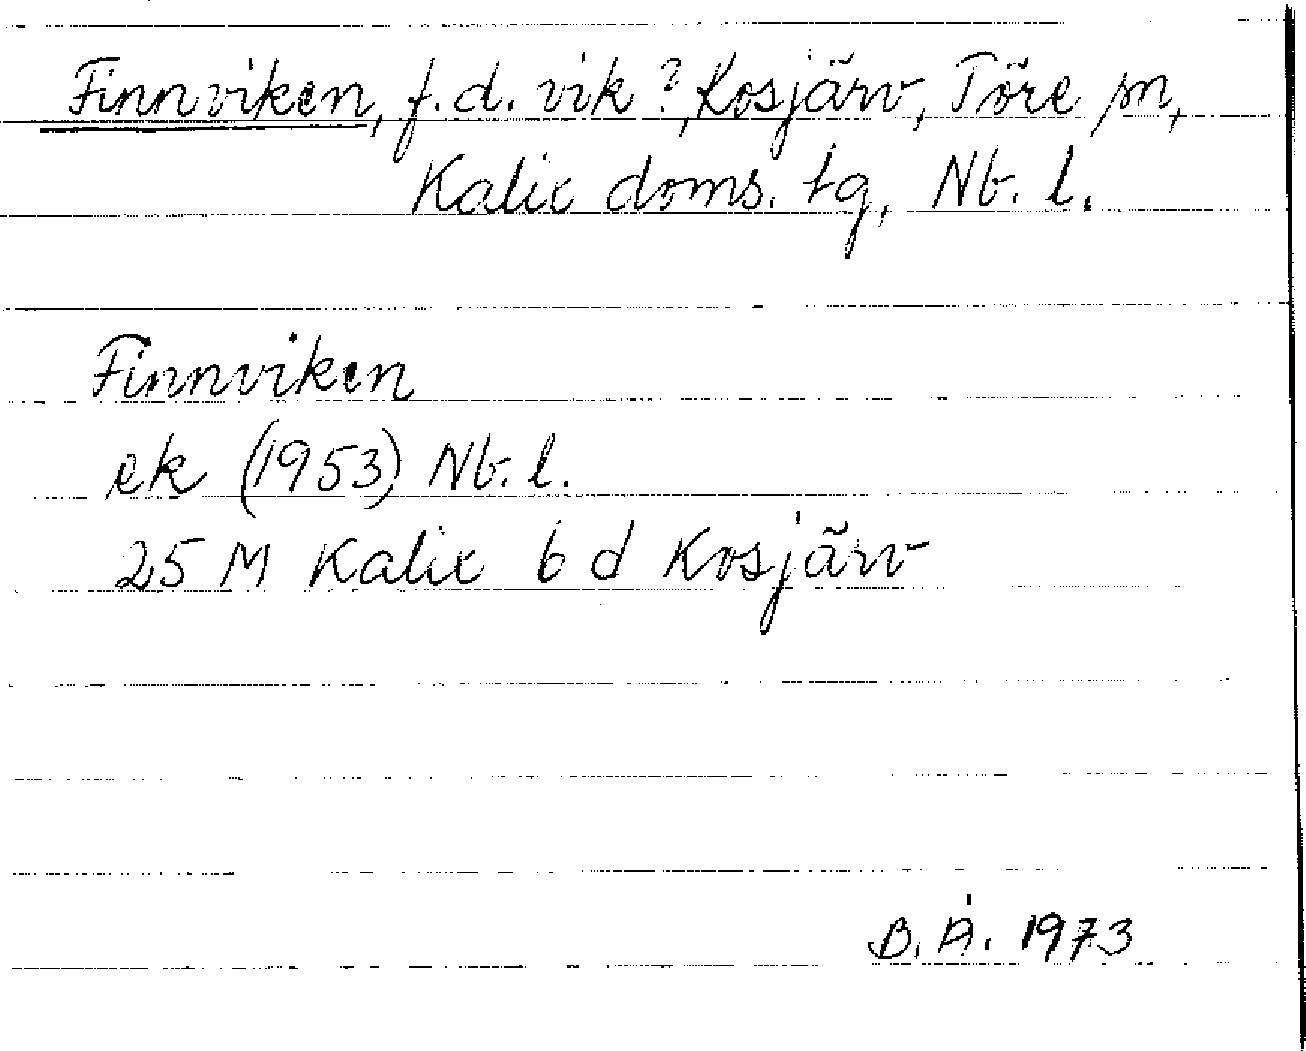 Finnviken, f.d. vik?, Kosjärv, Töre sn,
Kalix doms. tg, Nb. l.
Finnviken
ek (1953) Nb. l.
25 M Kalix 6 d Kosjärv
B. Å. 1973